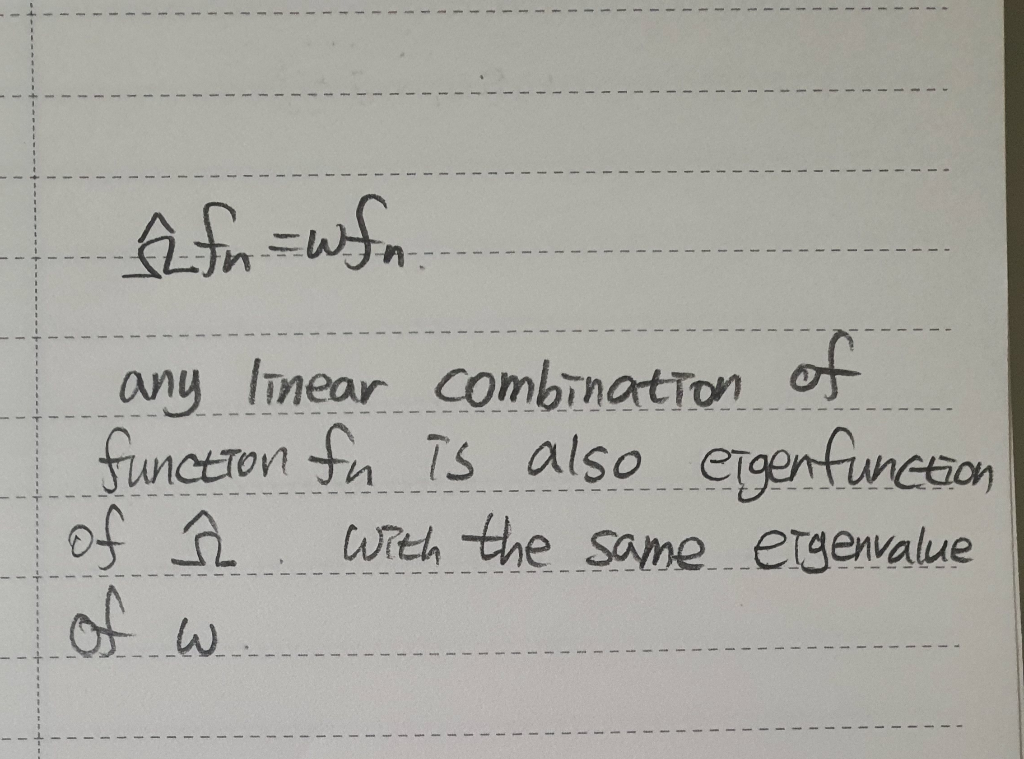 Ω̂ fn = ωfn.
any linear combination of
function fn is also eigenfunction
of Ω̂ . with the same eigenvalue
of ω.